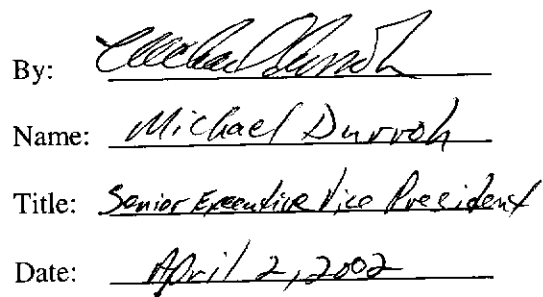 By: Michael Durroh
Name: Michael Durroh
Title: Senior Executive Vice President
Date: April 2, 2002